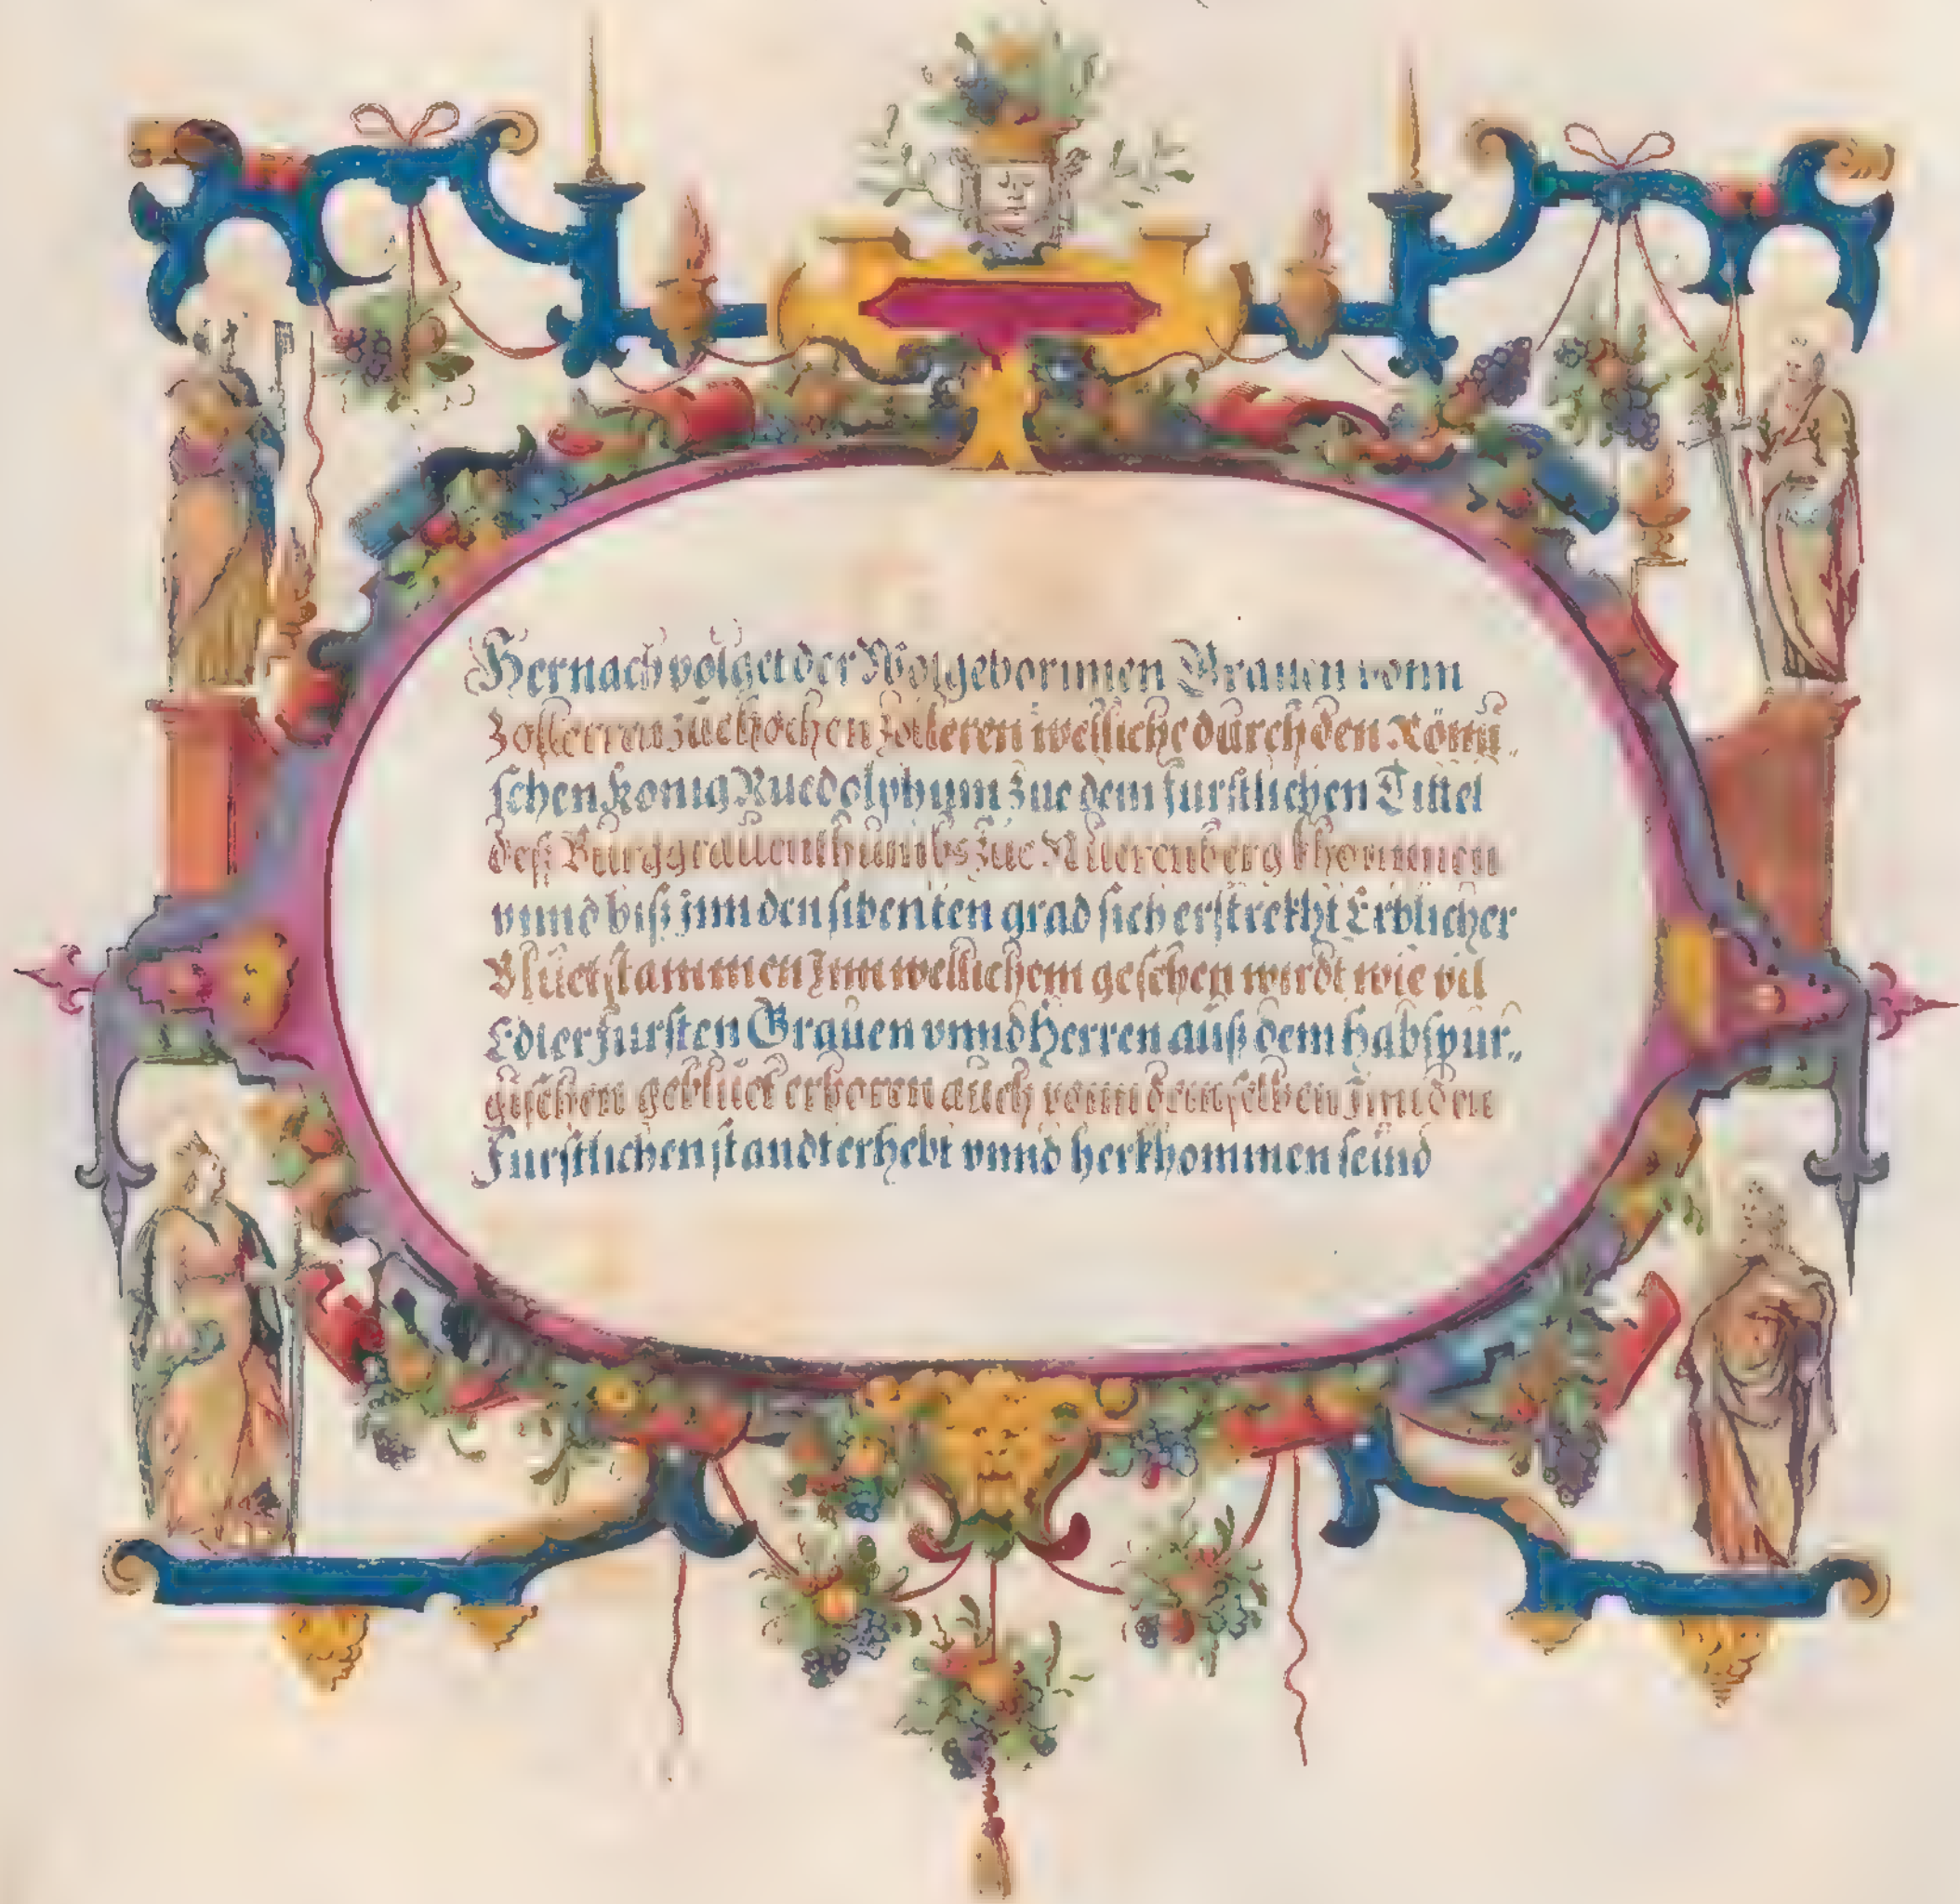 Hernach volget der Wolgebornnen Grauen vonn
Zollerrnn zue hochen Zolleren welliche durch den Römi„
schen Konig Ruedolphum zue dem furstlichen Tittel
deß Burggrauenthumbs zue Nuerenberg khommen
vnnd biß jnn den sibenten grad sich erstrekht Erblicher
Bluetstammen Jnn wellichem gesehen wirdt wie vil
Edler fursten Grauen vnnd Herren auß dem habspur„
gischen gebluet erboren auch vonn demselben Jnn den
Furstlichen standt erhebt vnnd herkhommen seind